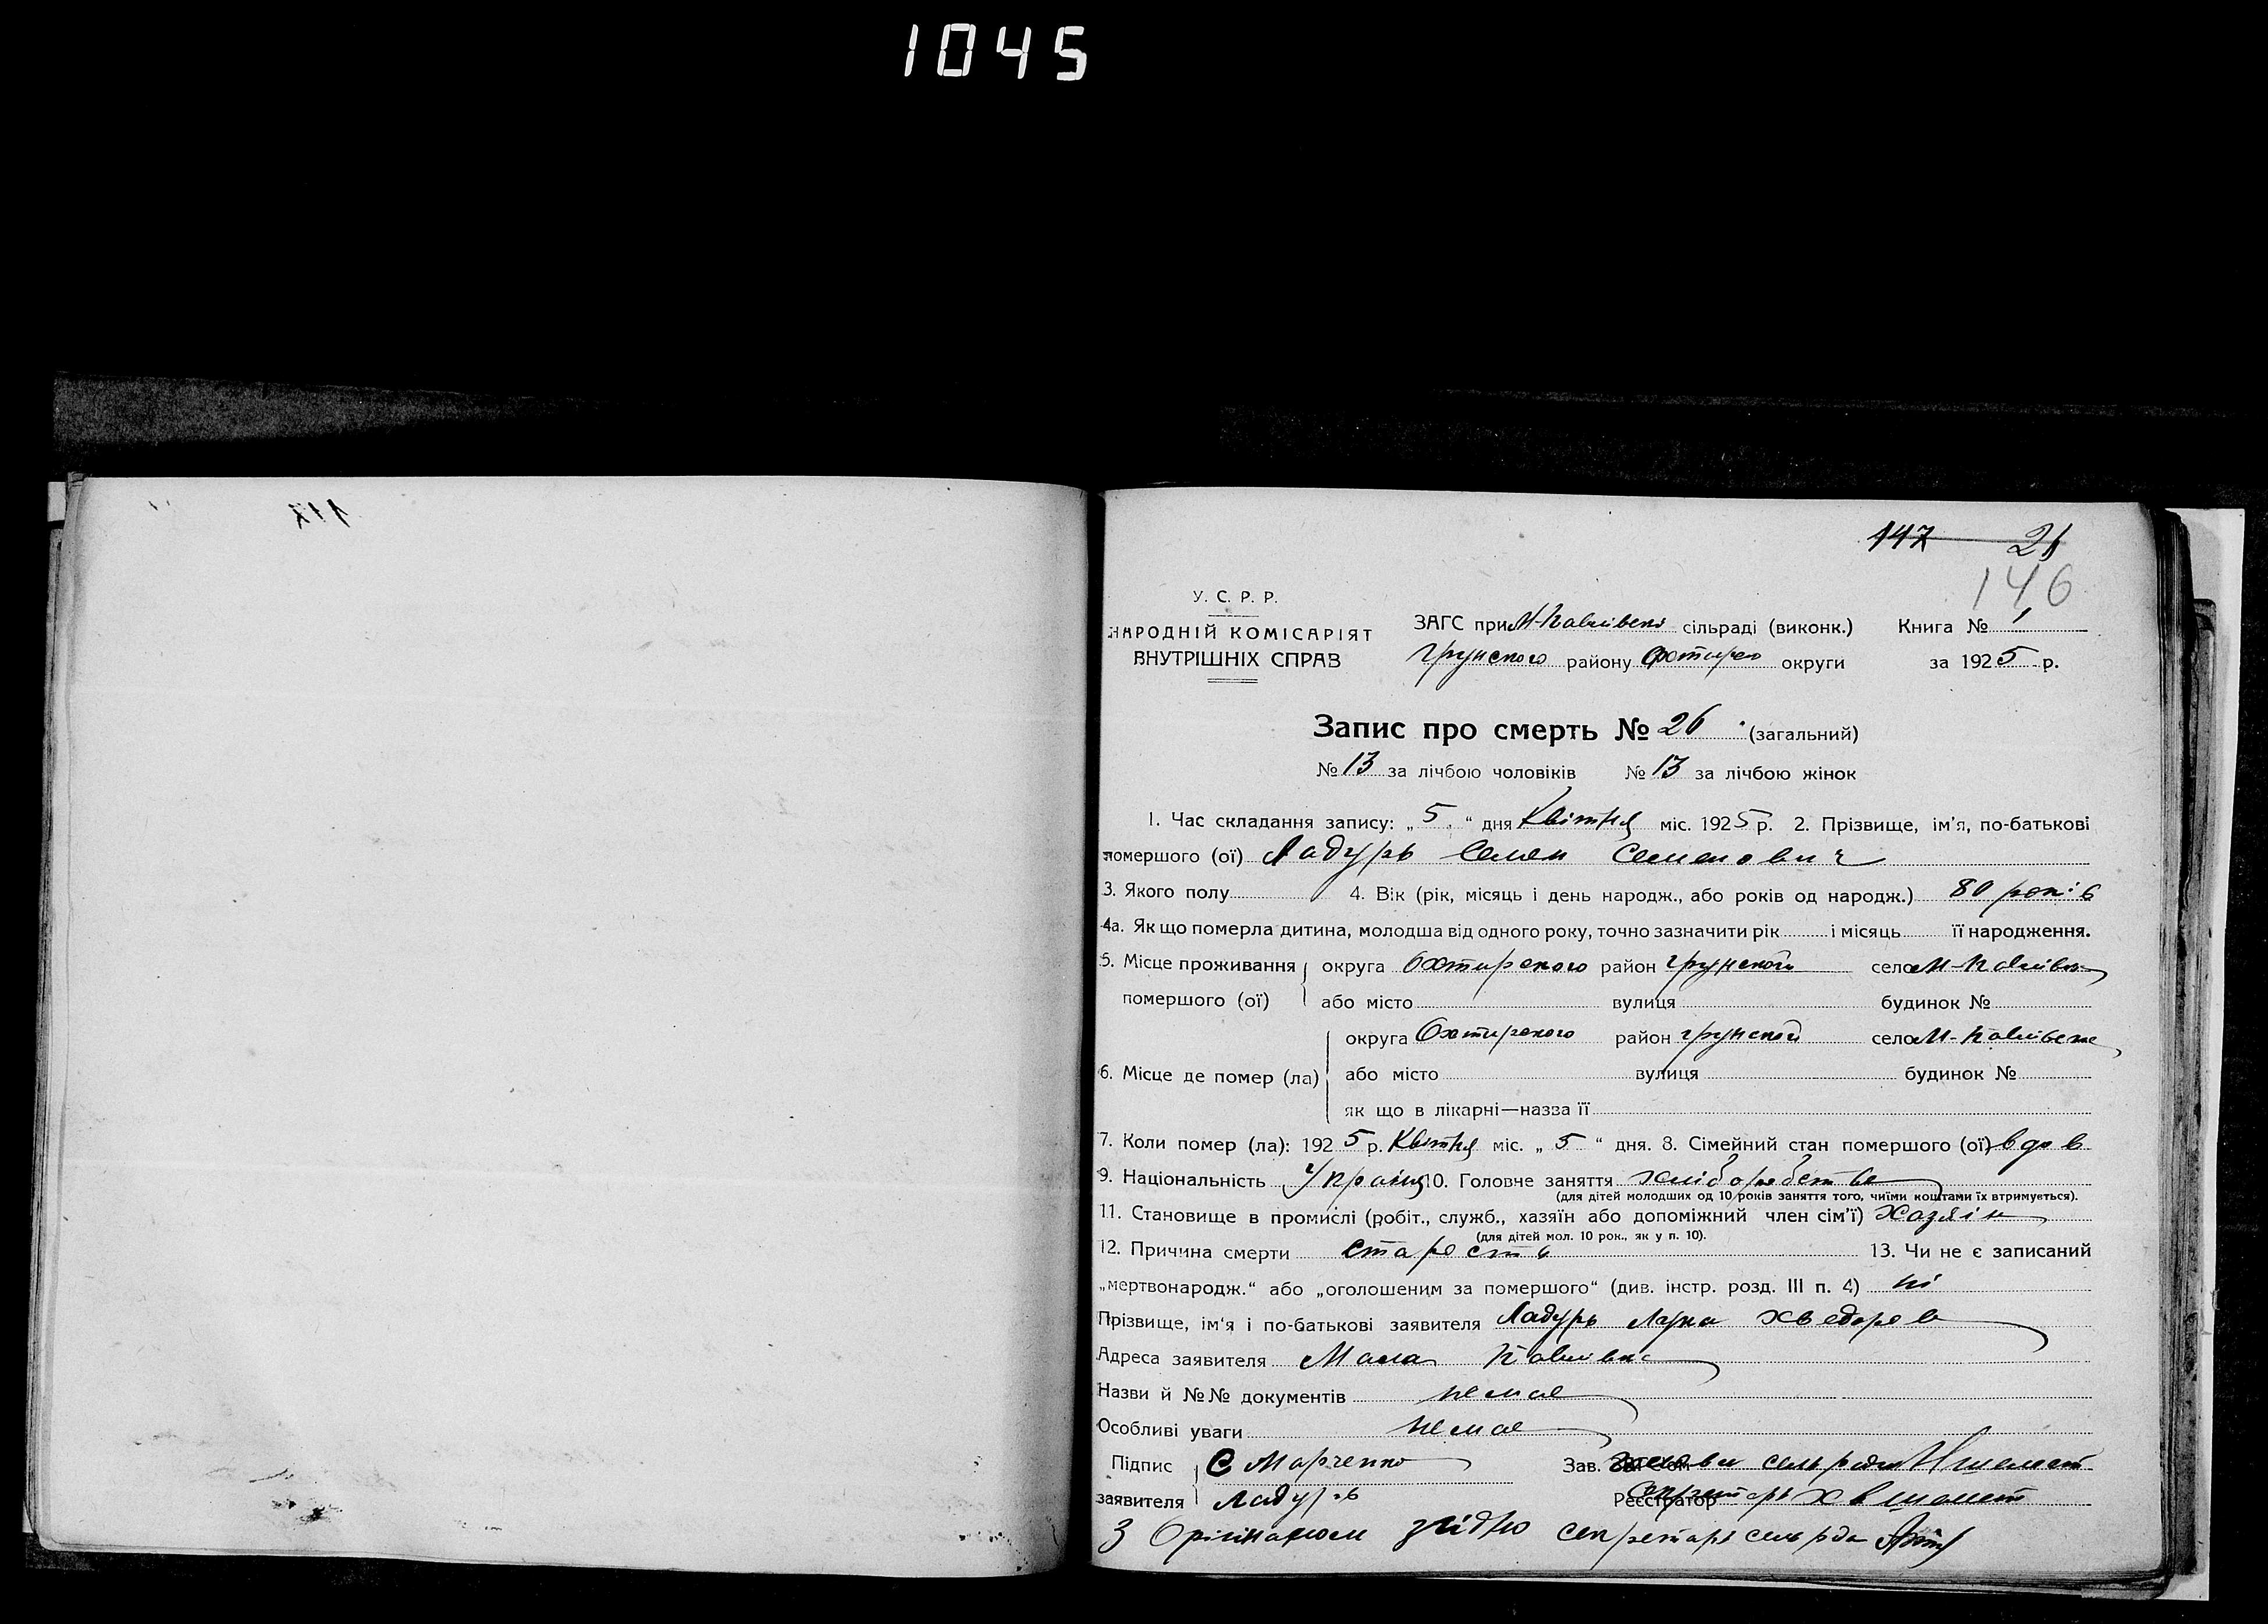 1045
117
147 21
146
У. С. Р. Р.
НАРОДНІЙ КОМІСАРІЯТ
ВНУТРІШНІХ СПРАВ
ЗАГС при М-Павлівскі сільраді (виконк.) Книга № 1
Грунского району Охтирсо округи за 1925 р.
Запис про смерть № 26 (загальний)
№ 13 за лічбою чоловіків № 13 за лічбою жінок
1. Час складання запису: „5“ дня Квітня міс. 1925 р. 2. Прізвище, ім’я, по-батькові
помершого (ої) Ладурь Семен Семенович
3. Якого полу 4. Вік (рік, місяць і день народж., або років од народж.) 80 років
4а. Як що померла дитина, молодша від одного року, точно зазначити рік і місяць її народження.
5. Місце проживання округа Охтирского район Грунского село М-Павлівка
помершого (ої) або місто вулиця будинок №
округа Охтирского район Грунской село М-Павлівске
6. Місце де помер (ла) або місто вулиця будинок №
як що в лікарні—назва її
7. Коли помер (ла): 1925 р. Квітня міс. „5“ дня. 8. Сімейний стан помершого (ої) вдов
9. Національність Україн 10. Головне заняття хліборобства
(для дітей молодших од 10 років заняття того, чиїми коштами їх втримується).
11. Становище в промислі (робіт., служб., хазяїн або допоміжний член сім’ї) Хазяін
(для дітей мол. 10 рок., як у п. 10).
12. Причина смерти старость 13. Чи не є записаний
„мертвонародж.“ або „оголошеним за помершого“ (див. інстр. розд. III п. 4) ні
Прізвище, ім’я і по-батькові заявителя Ладурь Лука Хведоров
Адреса заявителя Мала Павлівка
Назви й №№ документів немає
Особливі уваги немає
Підпис С Марченко Зав. Голови сельради Н Шелест
заявителя Ладурь Реєстратор Секретарь Х в Шолест
З Орігіналом згідно секретарь сельрда